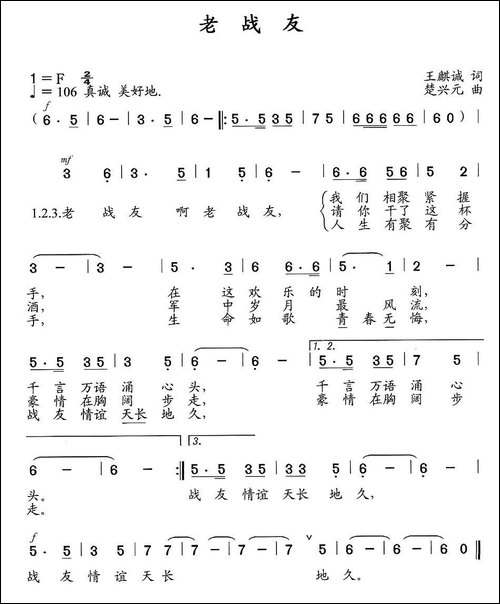 老战友
1=F 2/4 王麒诚 词
♩=106 真诚 美好地. 楚兴元 曲
f
(6·5|6-|3·5|6-|:5·535|75|66666|60)|
mf
3 6|3·5|1 5|6-|6·6 56|5 2|
1.2.3.老 战 友 啊 老 战 友, 我 们 相 聚 紧 握
请 你 干 了 这 杯
人 生 有 聚 有 分
3-|3-|5·3|6 6·6|5·1|2-|
手, 在 这 欢 乐 的 时 刻,
酒, 军 中 岁 月 最 风 流,
手, 生 命 如 歌 青 春 无 悔,
1. 2.
5·5 35|3 5|6-|6-|5·5 35|7 5|
千 言 万语 涌 心 头, 千 言 万语 涌 心
豪 情 在胸 阔 步 走, 豪 情 在胸 阔 步
战 友 情谊 天长 地 久,
3.
6-|6-:|5·5 35|35 35|6·6|6-|
头。 战 友 情谊 天长 地 久,
走。
f
5·5|3 5|7 7|7-|7-|5 5|6-|6-|6-|60||
战 友 情 谊 天 长 地 久。